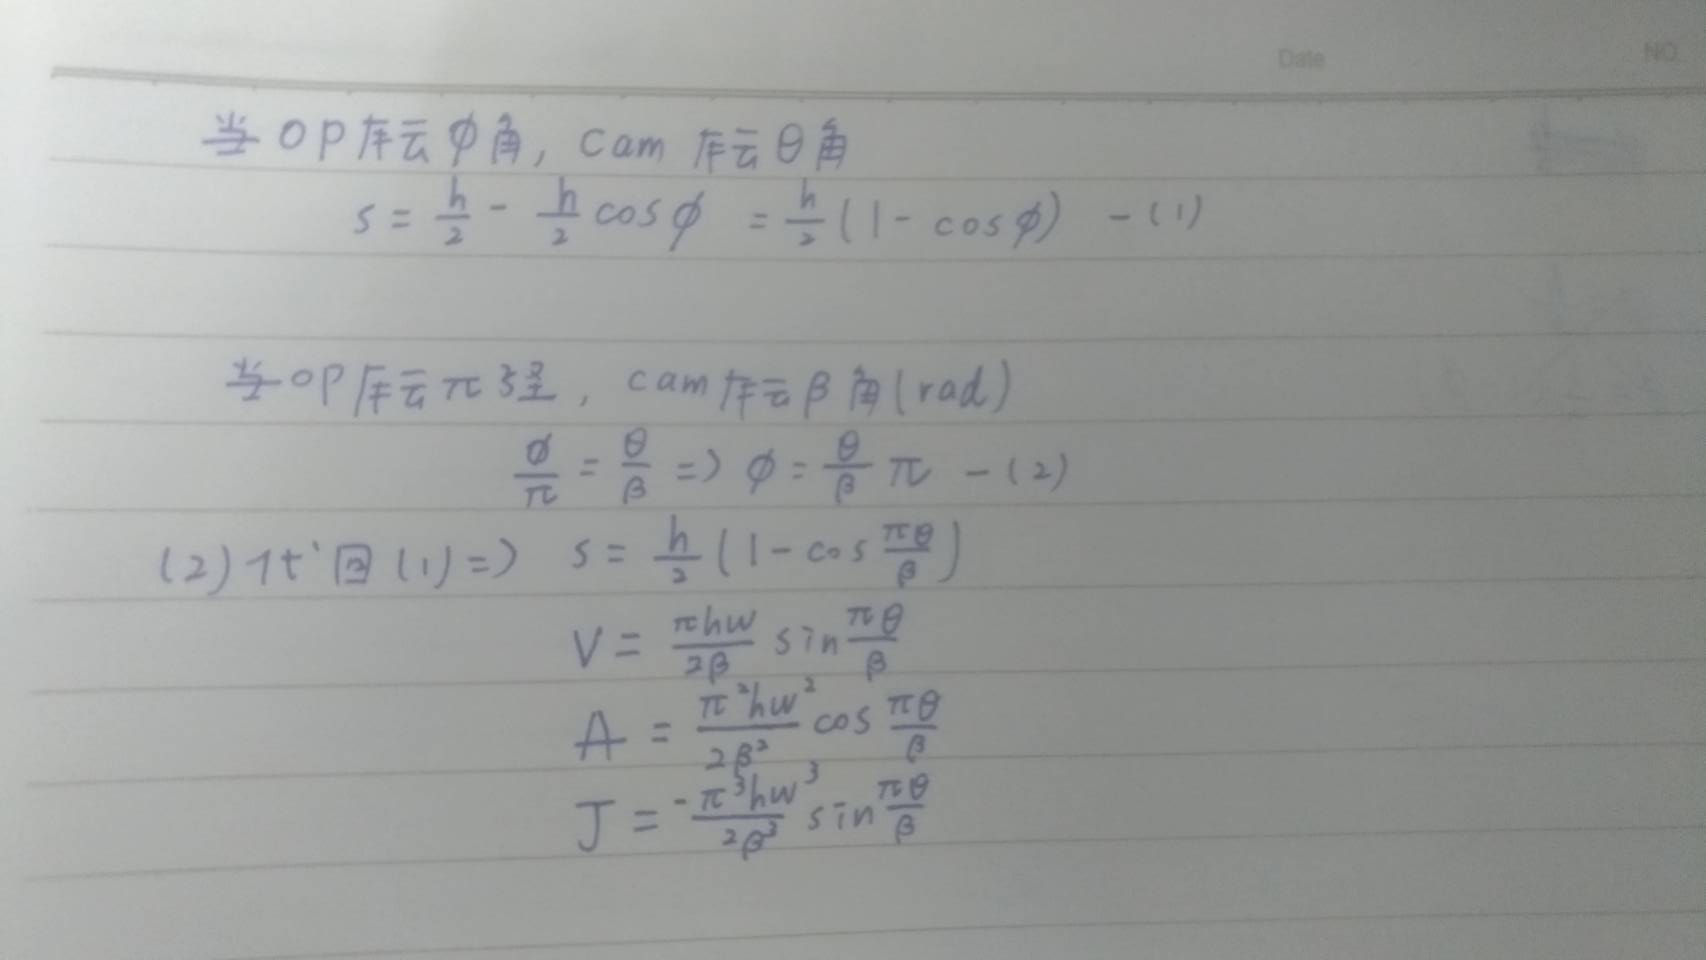 Date NO.
当OP厈云φ角, cam 厈云θ角
s = h/2 - h/2 cosφ = h/2 (1 - cosφ) -(1)
当OP厈云π 径, cam厈云β角(rad)
φ/π = θ/β => φ = θ/β π -(2)
(2)代回(1)=> s = h/2 (1 - cos πθ/β)
V = πhw/2β sin πθ/β
A = π²hw²/2β² cos πθ/β
J = -π³hw³/2β³ sin πθ/β